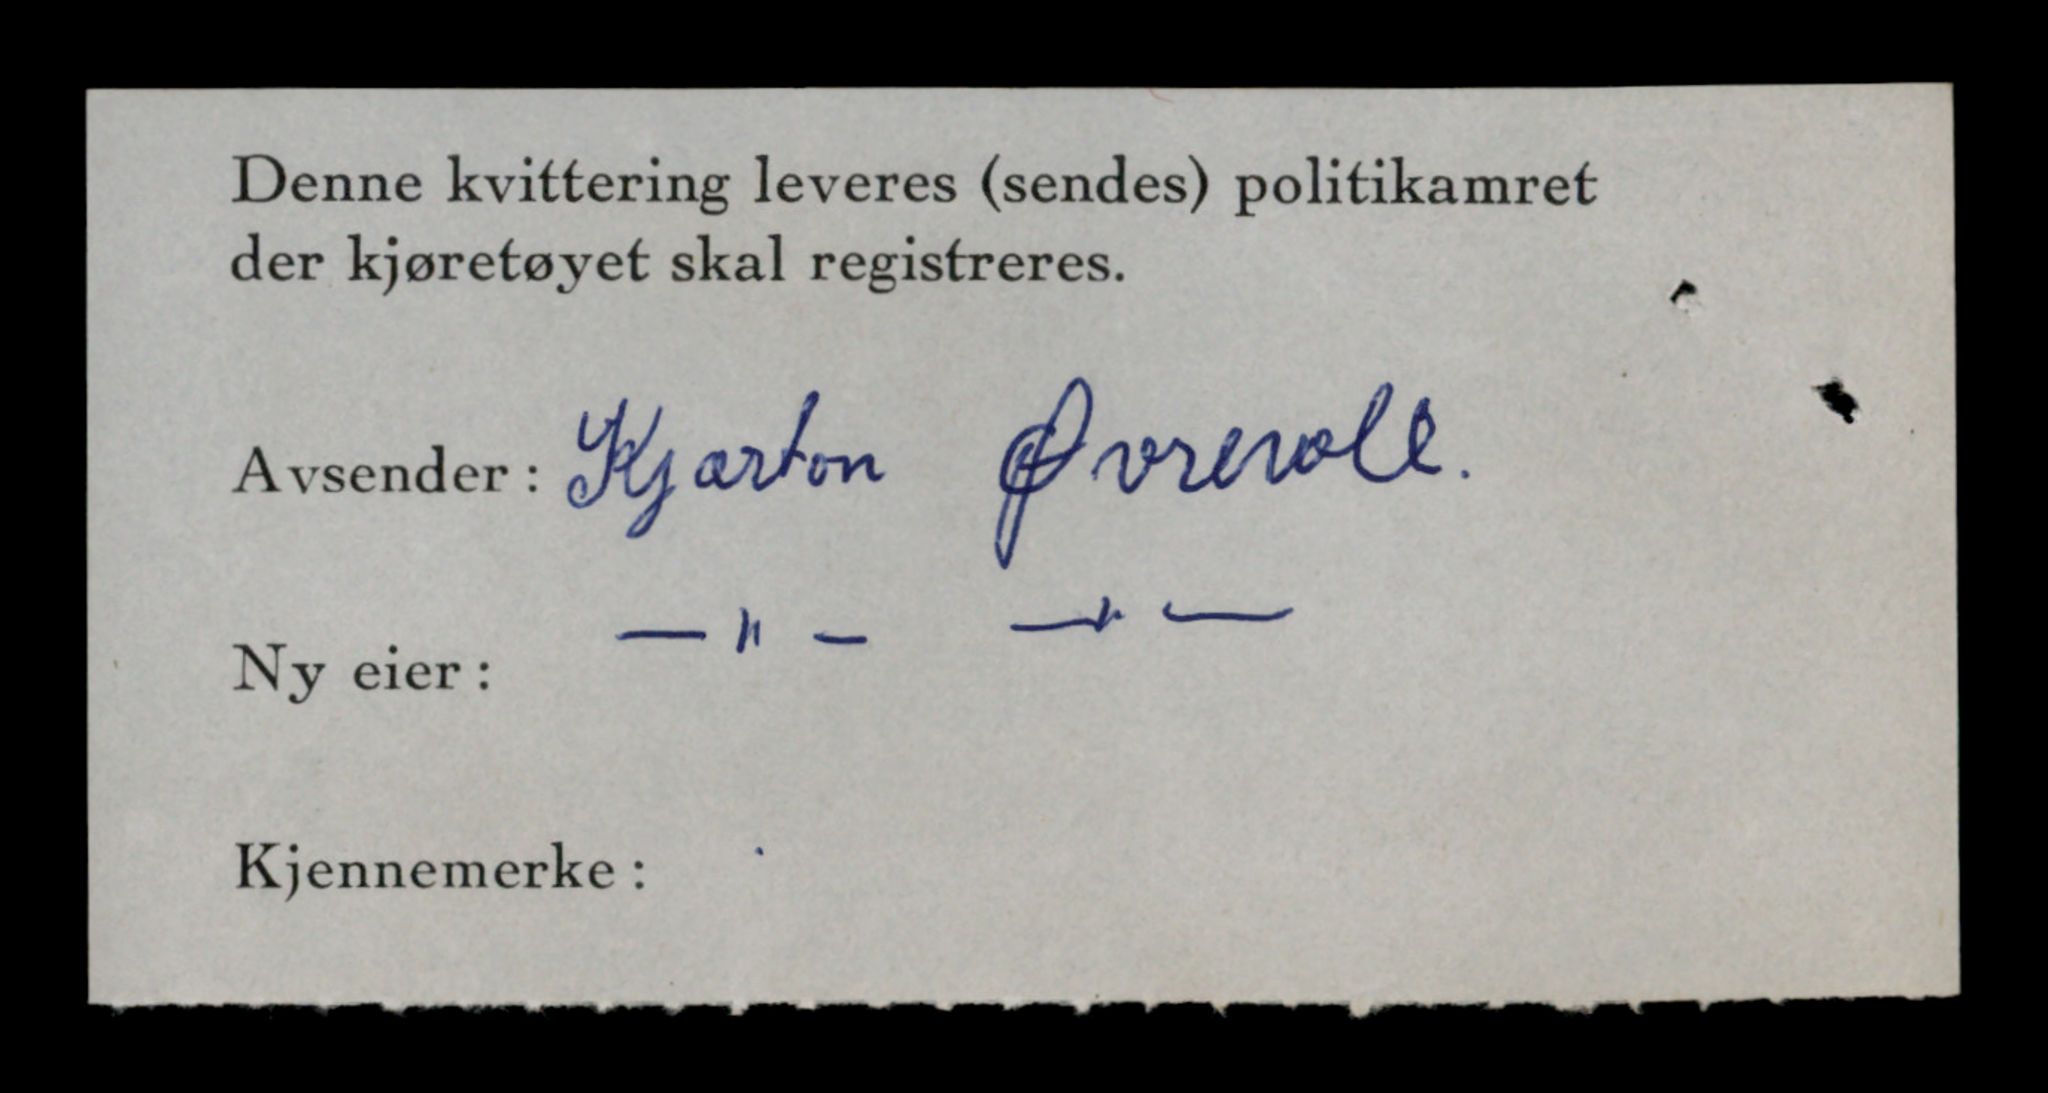 Denne kvittering leveres (sendes) politikamret
der kjøretøyet skal registreres.
Avsender: Kjartan Øvrevoll.
Ny eier: —"— —"—
Kjennemerke: